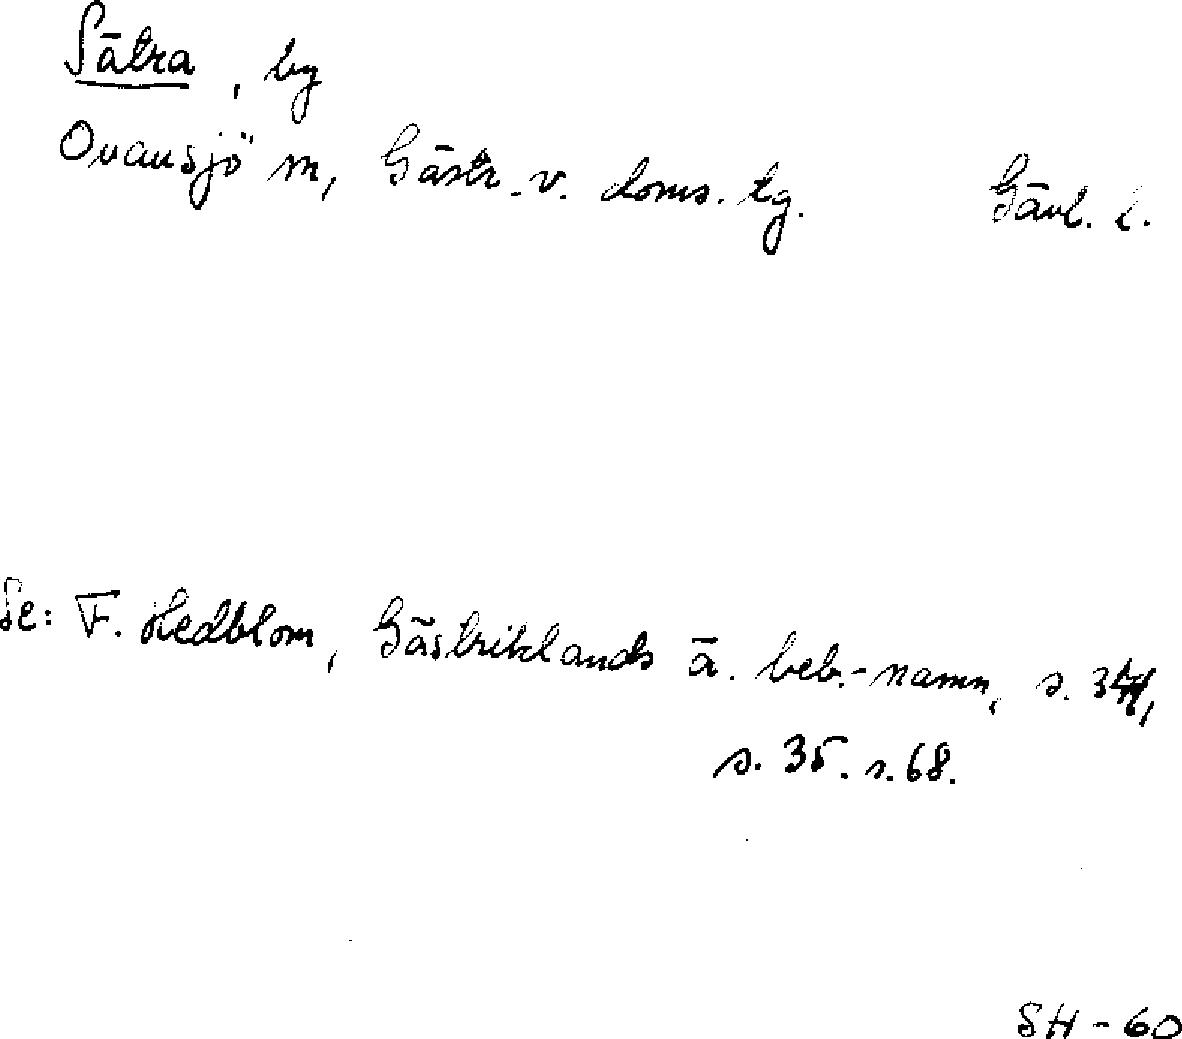 Sätra, by
Ovansjö sn, Gästr. v. doms. tg. Gävl. l.
Se: F. Hedblom, Gästriklands ä. beb.-namn, s.
s. 35. s. 68.
SH-60